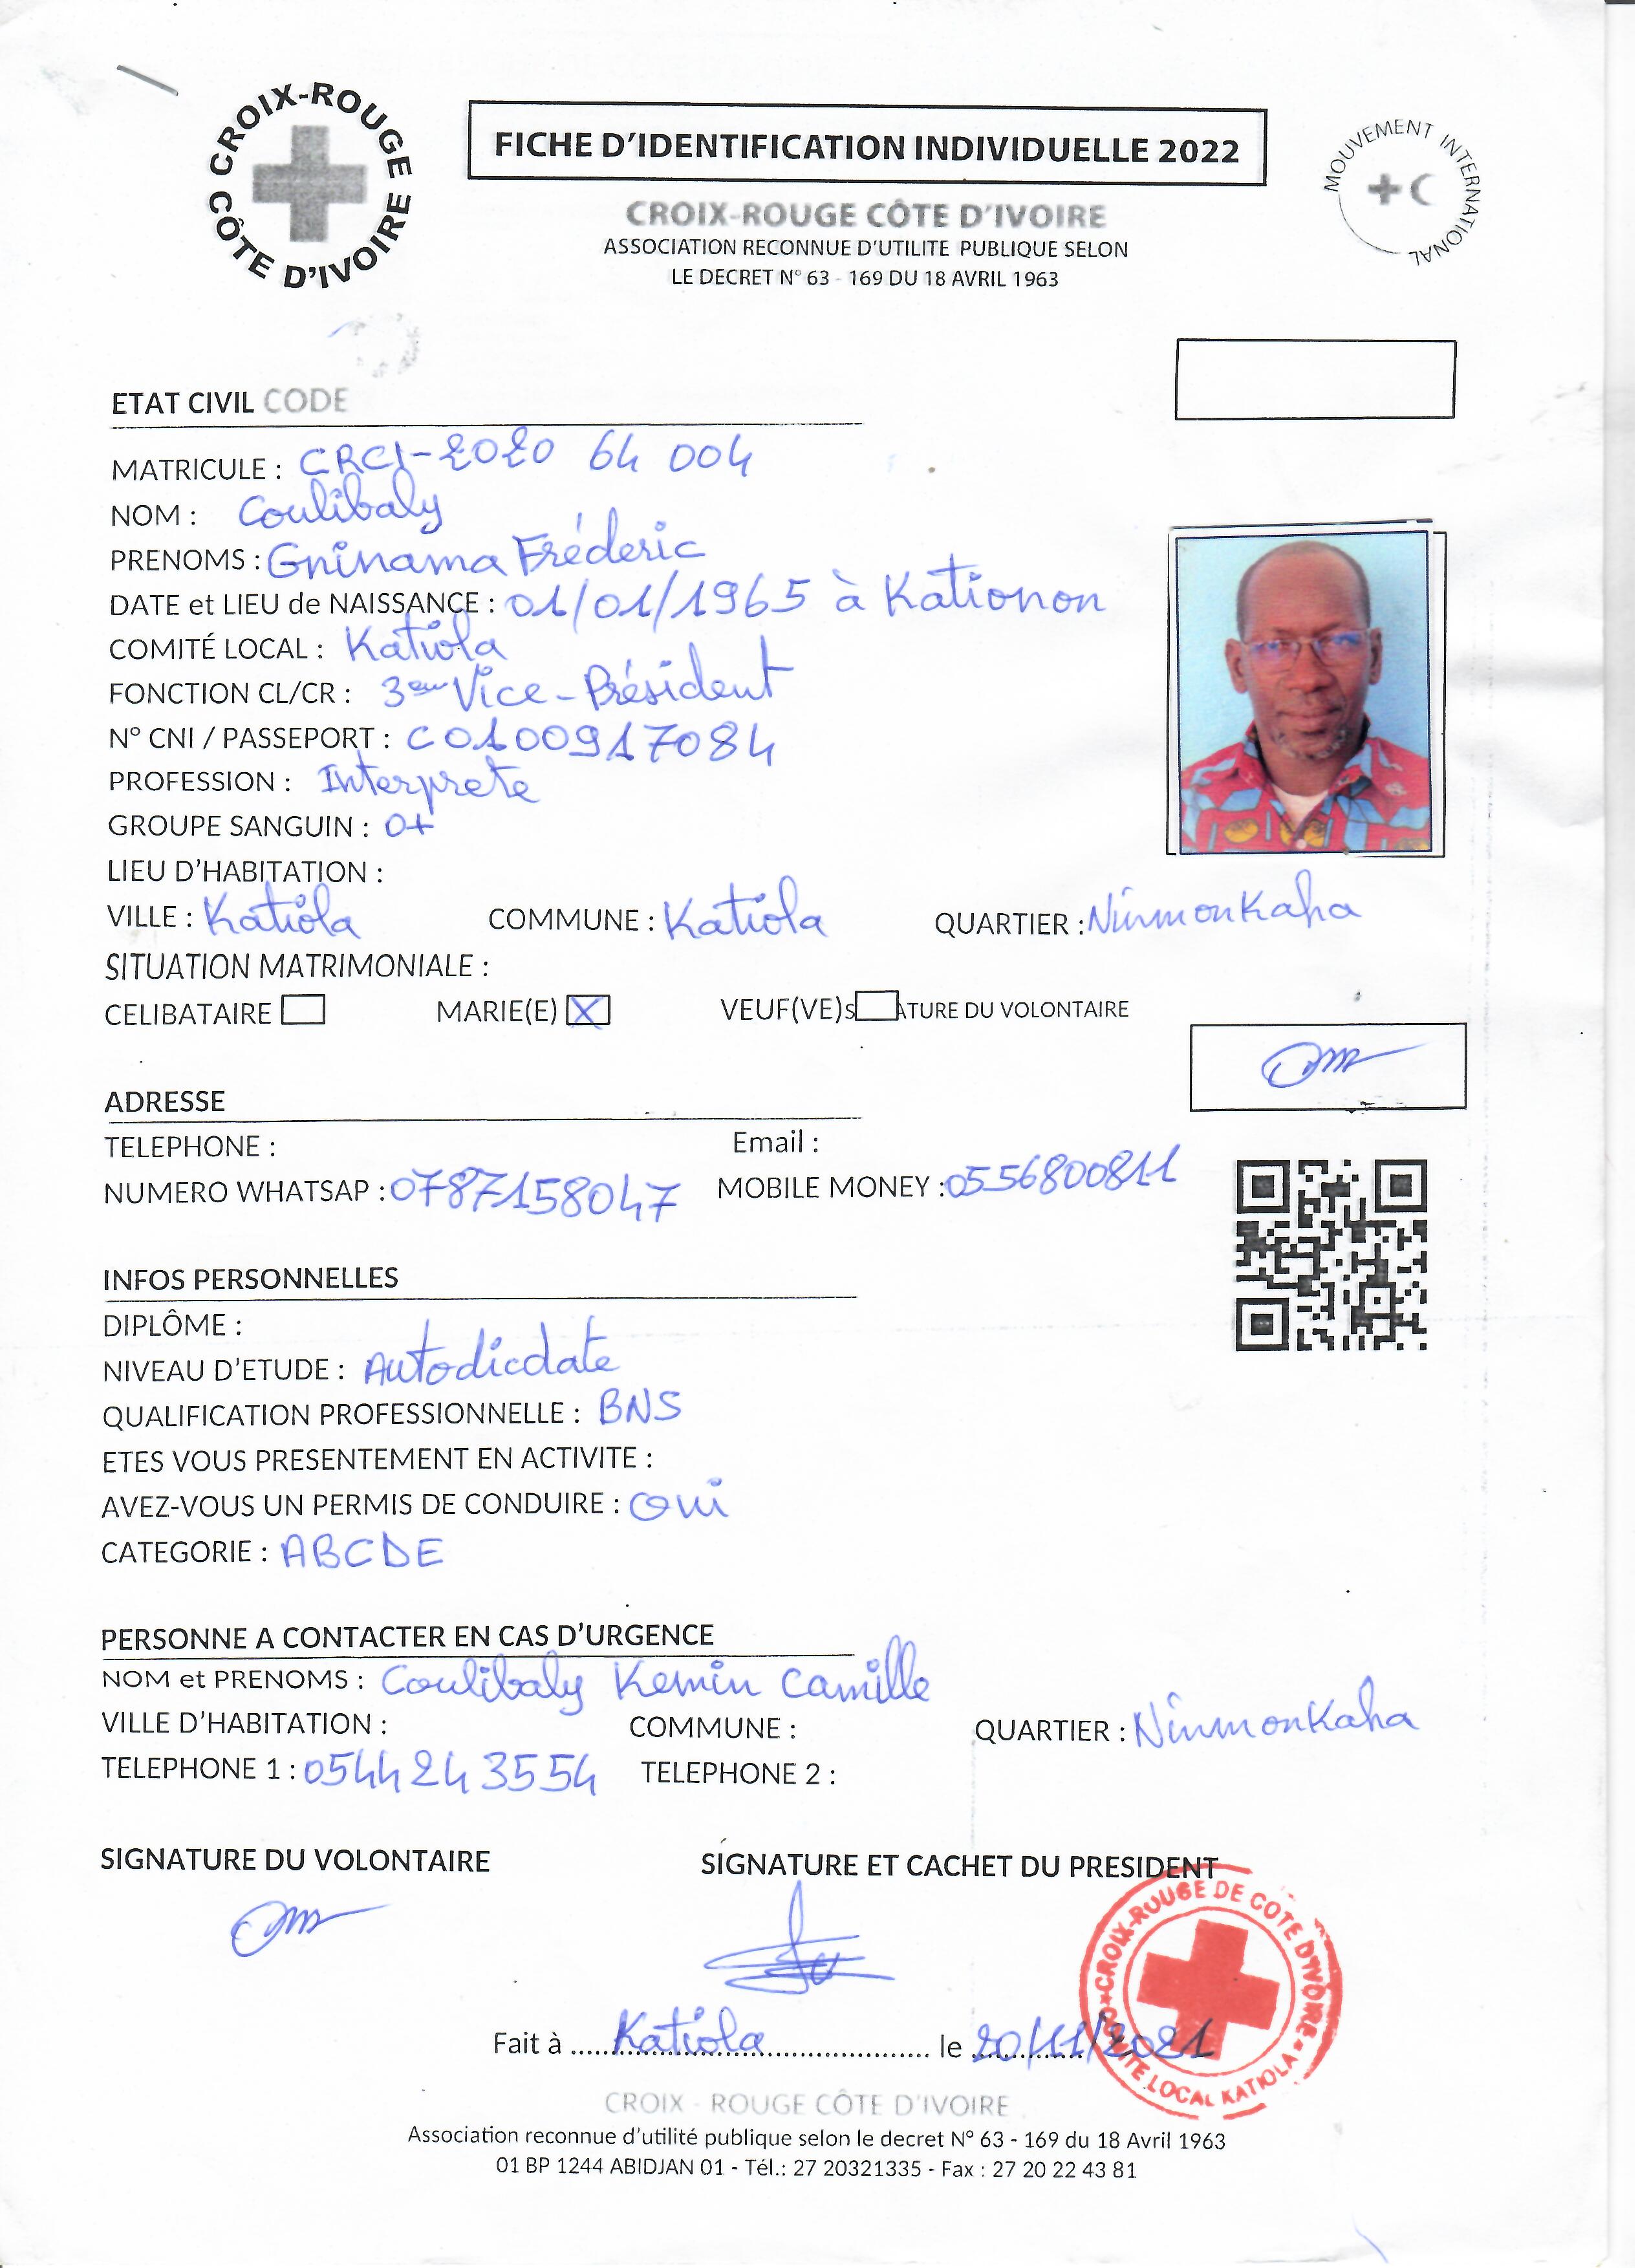 CROIX-ROUGE CÔTE D'IVOIRE
FICHE D'IDENTIFICATION INDIVIDUELLE 2022
MOUVEMENT INTERNATIONAL
CROIX-ROUGE CÔTE D'IVOIRE
ASSOCIATION RECONNUE D'UTILITE PUBLIQUE SELON
LE DECRET N° 63 - 169 DU 18 AVRIL 1963
ETAT CIVIL CODE
MATRICULE : CRCI-2020 64 004
NOM : Coulibaly
PRENOMS : Gninama Fréderic
DATE et LIEU de NAISSANCE : 01/01/1965 à Kationon
COMITÉ LOCAL : Katiola
FONCTION CL/CR : 3em Vice-Président
N° CNI / PASSEPORT : C0100917084
PROFESSION : Interprete
GROUPE SANGUIN : O+
LIEU D'HABITATION :
VILLE : Katiola COMMUNE : Katiola QUARTIER : Ninmonkaha
SITUATION MATRIMONIALE :
CELIBATAIRE MARIE(E) X VEUF(VE) S ATURE DU VOLONTAIRE
ADRESSE
TELEPHONE : Email :
NUMERO WHATSAP : 0787158047 MOBILE MONEY : 0556800811
INFOS PERSONNELLES
DIPLÔME :
NIVEAU D'ETUDE : Autodicdate
QUALIFICATION PROFESSIONNELLE : BNS
ETES VOUS PRESENTEMENT EN ACTIVITE :
AVEZ-VOUS UN PERMIS DE CONDUIRE : Oui
CATEGORIE : ABCDE
PERSONNE A CONTACTER EN CAS D'URGENCE
NOM et PRENOMS : Coulibaly Kemin Camille
VILLE D'HABITATION : COMMUNE : QUARTIER : Ninmonkaha
TELEPHONE 1 : 0544243554 TELEPHONE 2 :
SIGNATURE DU VOLONTAIRE SIGNATURE ET CACHET DU PRESIDENT
CROIX-ROUGE DE COTE D'IVOIRE
COMITE LOCAL KATIOLA
Fait à Katiola le 20/11/2021
CROIX - ROUGE CÔTE D'IVOIRE
Association reconnue d'utilité publique selon le decret N° 63 - 169 du 18 Avril 1963
01 BP 1244 ABIDJAN 01 - Tél.: 27 20321335 - Fax : 27 20 22 43 81